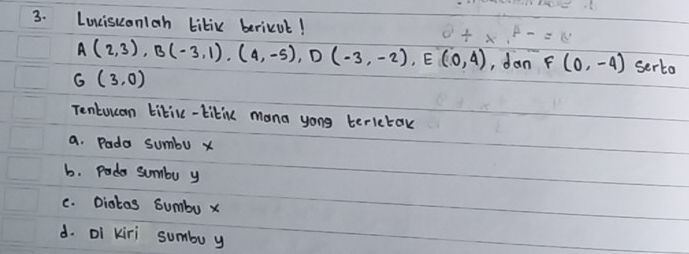 3. Lukiskanlah titik berikut!
A (2,3), B(-3,1), (4,-5), D (-3,-2), E (0,4), dan F (0,-4) serta
G (3,0)
Tentukan titik-titik mana yang terletak
a. Pada sumbu x
b. Pada sumbu y
c. Diatas sumbu x
d. Di kiri sumbu y